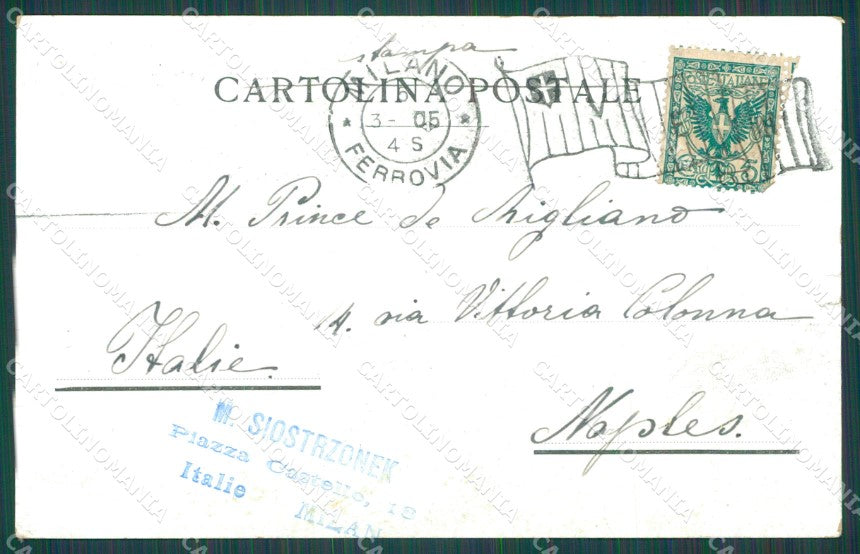 stampa
CARTOLINA POSTALE
MILANO
3- 05
4 S
FERROVIA
M. Prince de Migliano
14. via Vittoria Colonna
Italie.
Naples.
M. SIOSTRZONEK
Piazza Castello, 18
Italie
MILAN
CARTOLINOMANIA